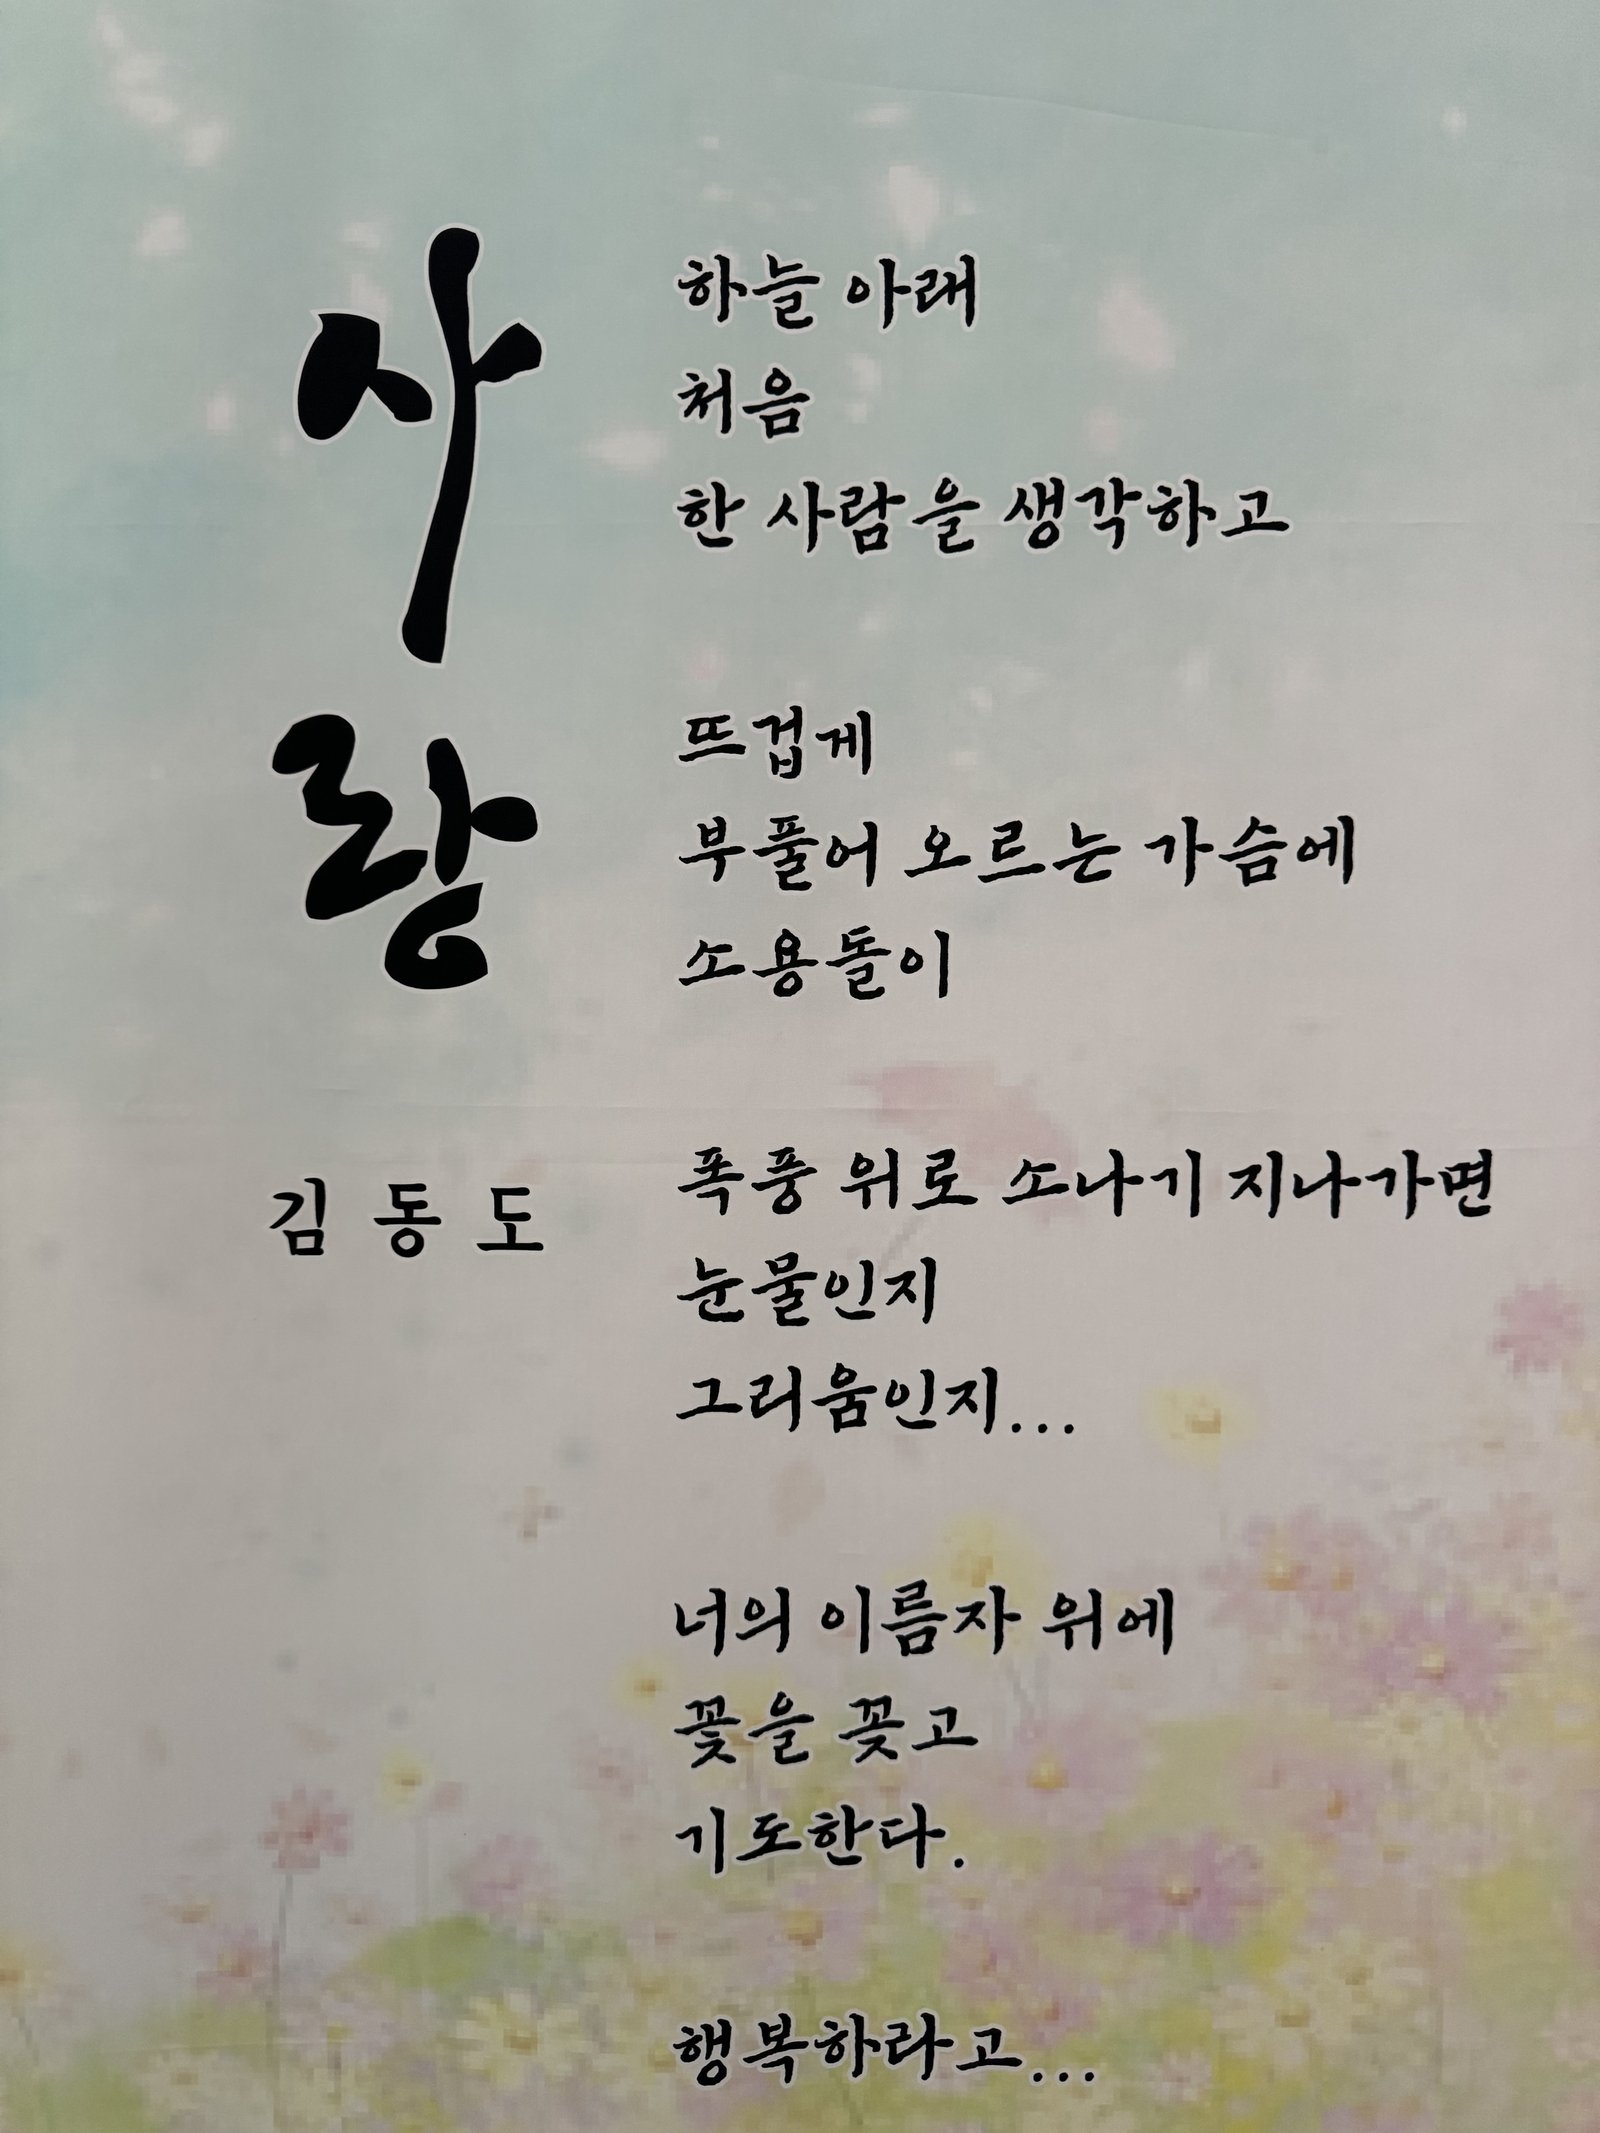 사랑
김동도
하늘 아래
처음
한 사람을 생각하고
뜨겁게
부풀어 오르는 가슴에
소용돌이
폭풍 위로 소나기 지나가면
눈물인지
그리움인지...
너의 이름자 위에
꽃을 꽂고
기도한다.
행복하라고...